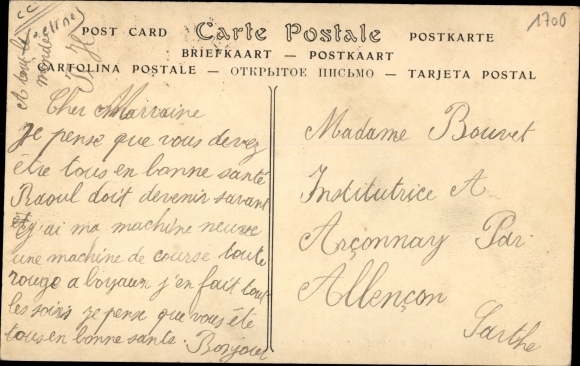 1700
POST CARD Carte Postale POSTKARTE
BRIEFKAART — POSTKAART
CARTOLINA POSTALE — ОТКРЫТОЕ ПИСЬМО — TARJETA POSTAL
Cher Marraine
Je pense que vous devez
être tous en bonne santé
Raoul doit devenir savant
j'ai ma machine neuve
une machine de course toute
rouge a boyaux j'en fait tout
les soirs je pense que vous été
tous en bonne sante. Bonjour
A tout le
monde
Madame Bouvet
Institutrice A
Arçonnay Par
Allençon
Sarthe